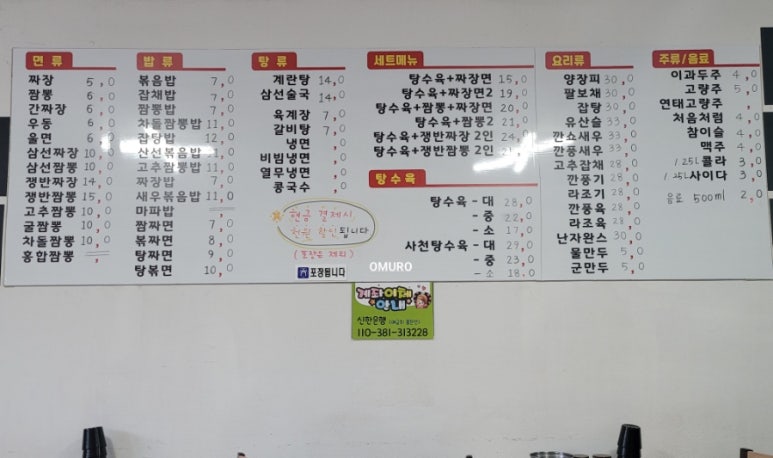 면 류
짜장 5,0
짬뽕 6,0
간짜장 6,0
우동 6,0
울면 6,0
삼선짜장 10,0
삼선짬뽕 10,0
쟁반짜장 14,0
쟁반짬뽕 15,0
고추짬뽕 10,0
굴짬뽕 10,0
차돌짬뽕 10,0
홍합짬뽕
밥 류
볶음밥 7,0
잡채밥 7,0
짬뽕밥 7,0
차돌짬뽕밥 11,0
잡탕밥 12,0
산선볶음밥 11,0
고추짬뽕밥 11,0
짜장밥 7,0
새우볶음밥 11,0
마파밥
짬짜면 7,0
볶짜면 8,0
탕짜면 9,0
탕볶면 10,0
탕 류
계란탕 14,0
삼선술국 14,0
육계장 7,0
갈비탕 7,0
냉면 ,0
비빔냉면 ,0
열무냉면 ,0
콩국수 ,0
현금 결제시
천원 할인됩니다
(포장은 제외)
포장됩니다
세트메뉴
탕수육+짜장면 15,0
탕수육+짜장면2 19,0
탕수육+짬뽕+짜장면 20,0
탕수육+짬뽕2 21,0
탕수육+쟁반짜장 2인 24,0
탕수육+쟁반짬뽕 2인
탕수육
탕수육 - 대 28,0
- 중 22,0
- 소 17,0
사천탕수육 - 대 29,0
- 중 23,0
- 소 18.0
요리류
양장피 30,0
팔보채 30,0
잡탕 30,0
유산슬 33,0
깐쇼새우 33,0
깐풍새우 33,0
고추잡채 28,0
깐풍기 28,0
라조기 28,0
깐풍육 28,0
라조육 28,0
난자완스 30,0
물만두 5,0
군만두 5,0
주류/음료
이과두주 4,0
고량주 5,0
연태고량주 ,0
처음처럼 4,0
참이슬 4,0
맥주 4,0
1.25L콜라 3,0
1.25L사이다 3,0
음료 500ml 2,0
OMURO
계좌이체
안내
신한은행
110-381-313228